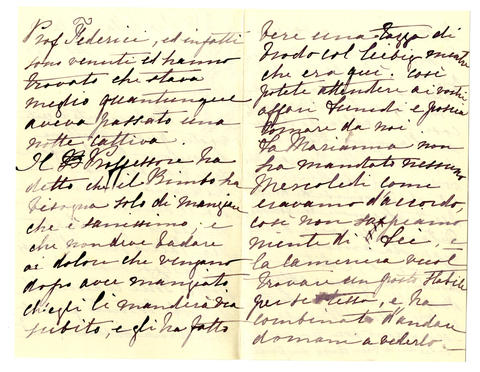 Prof Federici, ed infatti
sono venuti ed hanno
trovato che stava
meglio quantunque
aveva passato una
notte cattiva.
Il Professore ha
detto che il Bimbo ha
bisogna solo di mangiare
che è sanissimo, e
che non deve badare
ai dolori che vengano
dopo aver mangiato,
che gli li manderà via
subito, e gli ha fatto
bere una tazza di
brodo col Liebig mentre
che era qui. Così
potete attendere ai vostri
affari Lunedi e poscia
tornare da noi
La Marianna non
ha mandato nessuno
Mercoledi come
eravamo d'accordo,
così non sappiamo
niente di Lee, e
la cameriera vuol
trovare un posto stabile
per, e ha
combinato d'andare
domani a vederlo.